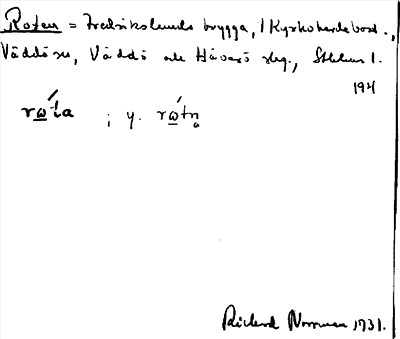 Roten = Fredrikslunds brygga, i Kyrkoherdebost.,
Väddö sn, Väddö och Häverö skg., Sthlms l.
194
rώta ; y. rώtṇ
Rickard Norrman 1931.